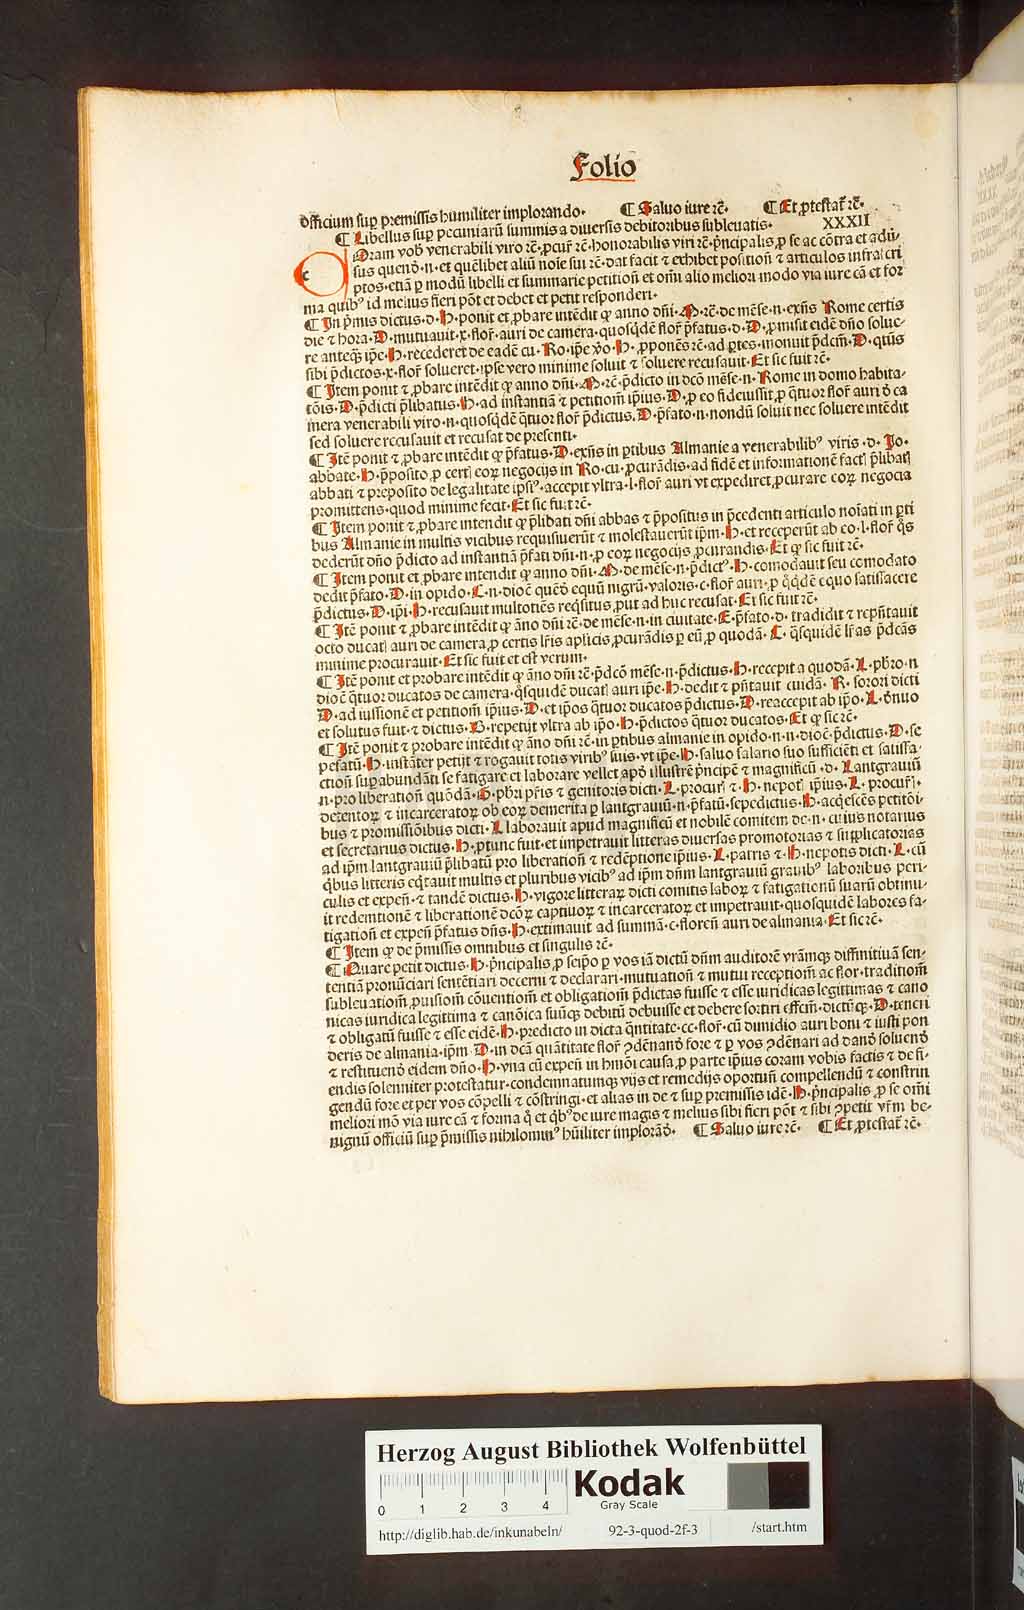 Folio
officium suꝑ premissis humiliter implorando· ¶ Saluo iure ⁊c̄· ¶ Et ꝓtestat̄ ⁊c̄·
¶ Libellus suꝑ pecuniarū summis a diuersis debitoribus subleuatis· XXXII
Oram vob̄ venerabili viro ⁊c̄·ꝓcur̄ ⁊c̄·honorabilis viri ⁊c̄·p̄ncipalis ꝓ se ac cōtra et adū/
sus quenō·n·et quēlibet aliū noīe sui ⁊c̄·dat facit ⁊ exhibet position̄ ⁊ articulos infrascri
ptos·etiā ꝑ modū libelli et summarie petition̄ et om̄i alio meliori modo via iure cā et for
ma quibꝰ id melius fieri pōt et debet et petit responderi·
¶ In p̄mis dictus·d·H·ponit et ꝓbare intēdit ꝙ anno dn̄i·M·⁊c̄·de mēse·n·exn̄s Rome certis
die ⁊ hora·D·mutuauit·x·flor̄·auri de camera·quosq̄dē flor̄ p̄fatus·d·D·ꝓmisit eidē dn̄o solue/
re anteqꝫ ip̄e·H·recederet de eadē cu·Ro·ip̄e v̄o·H·ꝓponēs ⁊c̄·ad ptes·monuit p̄dcm̄·D·qtius
sibi p̄dictos·x·flor̄ solueret·ipse vero minime soluit ⁊ soluere recusauit·Et sic fuit ⁊c̄·
¶ Item ponit ⁊ ꝓbare intēdit ꝙ anno dn̄i·M·⁊c̄·p̄dicto in dc̄o mēse·n·Rome in domo habita/
tōis·D·p̄dicti p̄libatus·H·ad instantiā ⁊ petitiom̄ ip̄ius·D·ꝓ eo fideiussit ꝓ q̄tuor flor̄ auri ō ca
mera venerabili viro·n·quosq̄dē q̄tuor flor̄ p̄dictus·D·p̄fato·n·nondū soluit nec soluere intēdit
sed soluere recusauit et recusat de presenti·
¶ Itē ponit ⁊ ꝓbare intēdit ꝙ p̄fatus·D·exn̄s in ptibus Almanie a venerabilibꝰ viris·d·Jo·
abbate·H·p̄posito ꝓ certꝭ eoꝝ negocijs in Ro·cu·ꝓcurādis·ad fidē et informationē factꝭ p̄libatꝭ
abbati ⁊ preposito de legalitate ip̄sꝰ·accepit vltra·l·flor̄ auri vt expediret ꝓcurare eoꝝ negocia
promittens·quod minime fecit·Et sic fuit ⁊c̄·
¶ Item ponit ⁊ ꝓbare intendit ꝙ p̄libati dn̄i abbas ⁊ p̄positus in p̄cedenti articulo noīati in ꝑti
bus Almanie in multis vicibus requisiuerūt ⁊ molestauerūt ip̄m·H·et receperūt ab eo·l·flor̄ q̄s
dederūt dn̄o p̄dicto ad instantiā p̄fati dn̄i·n·ꝓ eoꝝ negocijs ꝓcurandis·Et ꝙ sic fuit ⁊c̄·
¶ Item ponit et ꝓbare intendit ꝙ anno dn̄i·M·de mēse·n·p̄dictꝰ·H·comodauit seu comodato
dedit p̄fato·D·in opido·L·n·dioc̄ quēō equū nigrū·valoris·c·flor̄ auri·ꝓ q̄q̄dē equo satisfacere
p̄dictus·D·ip̄i·H·recusauit multotiēs req̄situs ꝓut ad huc recusat·Et sic fuit ⁊c̄·
¶ Itē ponit ⁊ ꝓbare intēdit ꝙ āno dn̄i ⁊c̄·de mēse·n·in ciuitate·E·p̄fato·d·tradidit ⁊ rep̄ntauit
octo ducatꝭ auri de camera ꝓ certis lr̄is aplicis ꝓcurādis ꝑ eū ꝓ quodā·L·q̄squidē lr̄as p̄dcās
minime procurauit·Et sic fuit et est verum·
¶ Itē ponit et probare intēdit ꝙ āno dn̄i ⁊c̄·p̄dcō mēse·n·p̄dictus·H·recepit a quodā·L·pb̄ro·n
dioc̄ q̄tuor ducatos de camera·q̄squidē ducatꝭ auri ip̄e·H·dedit ⁊ pn̄tauit cuidā·R·sorori dicti
D·ad iussionē et petitiom̄ ip̄ius·D·et ip̄os q̄tuor ducatos p̄dictus·D·reaccepit ab ip̄o·L·ōnuo
et solutus fuit·⁊ dictus·B·repetijt vltra ab ip̄o·H·p̄dictos q̄tuor ducatos·Et ꝙ sic ⁊c̄·
¶ Itē ponit ⁊ probare intēdit ꝙ āno dn̄i ⁊c̄·in ꝑtibus almanie in opido·n·n·dioc̄·p̄dictus·D·se
pefatū·H·instāter petijt ⁊ rogauit totis viribꝰ suis·vt ip̄e·H·saluo salario suo sufficiēti et satissa/
ction̄ suꝑabundāti se fatigare et laborare vellet apō illustrē p̄ncipē ⁊ magnificū·d·Lantgrauiū
·n·pro liberation̄ quōdā·S·pb̄ri pr̄is ⁊ genitoris dicti·L·procurꝭ ⁊·H·nepotꝭ ip̄ius·L·procurꝭ·
detentoꝝ ⁊ incarceratoꝝ ob eoꝝ demerita ꝑ lantgrauiū·n·p̄fatū·sepedictus·H·acq̄escēs petitōi/
bus ⁊ promissiōibus dicti·L·laborauit apud magnificū et nobilē comitem de·n·cuius notarius
et secretarius dictus·H·ꝓtunc fuit·et impetrauit litteras diuersas promotorias ⁊ suplicatorias
ad ip̄m lantgrauiū p̄libatū pro liberation̄ ⁊ redēptione ip̄ius·L·patris ⁊·H·nepotis dicti·L·cū
q̄bus litteris eq̄tauit multis et pluribus vicibꝰ ad ip̄m dn̄m lantgrauiū grauibꝰ laboribus peri/
culis et expen̄·⁊ tandē dictus·H·vigore litteraꝝ dicti comitis laboꝝ ⁊ fatigationū suarū obtinu/
it redemtionē ⁊ liberationē dcōꝝ captiuoꝝ ⁊ incarceratoꝝ et impetrauit·quosquidē labores fa/
tigation̄ et expen̄ p̄fatus dn̄s·H·extimauit ad summā·c·floren̄ auri de almania·Et sic ⁊c̄·
¶ Item ꝙ de p̄missis omnibus et singulis ⁊c̄·
¶ Quare petit dictus·H·p̄ncipalis ꝓ seip̄o ꝑ vos iā dictū dn̄m auditorē vrāmqꝫ diffinitiuā sen/
tentiā pronūciari sentētiari decerni ⁊ declarari·mutuation̄ ⁊ mutui receptiom̄ ac flor·traditiom̄
subleuatiom̄ ꝓuisiom̄ cōuentiom̄ et obligatiom̄ p̄dictas fuisse ⁊ esse iuridicas legittimas ⁊ cano
nicas iuridica legittima ⁊ canōica suūqꝫ debitū debuisse et debere sortiri effcm̄·dictūqꝫ·D·teneri
⁊ obligatū fuisse ⁊ esse eidē·H·predicto in dicta q̄ntitate·cc·flor̄·cū dimidio auri boni ⁊ iusti pon
deris de almania·ip̄m·D·in dcā quātitate flor̄ ꝯdēnanō fore ⁊ ꝑ vos ꝯdēnari ad danō soluenō
⁊ restituenō eidem dn̄o·H·vna cū expen̄ in hmōi causa ꝓ parte ip̄ius coram vobis factis ⁊ de fi/
endis solenniter protestatur·condemnatumqꝫ vijs et remedijs oportun̄ compellendū ⁊ constrin
gendū fore et per vos cōpelli ⁊ cōstringi·et alias in de ⁊ suꝑ premissis idē·H·p̄ncipalis ꝓ se om̄i
meliori mō via iure cā ⁊ forma q̄ et q̄bꝰ de iure magis ⁊ melius sibi fieri pōt ⁊ sibi ꝯpetit vr̄m be/
nignū officiū suꝑ p̄missis nihilominꝰ hūiliter implorādo· ¶ Saluo iure ⁊c̄· ¶ Et ꝓtestat̄ ⁊c̄·
Herzog August Bibliothek Wolfenbüttel
0 1 2 3 4
Kodak
Gray Scale
http://diglib.hab.de/inkunabeln/ 92-3-quod-2f-3 /start.htm